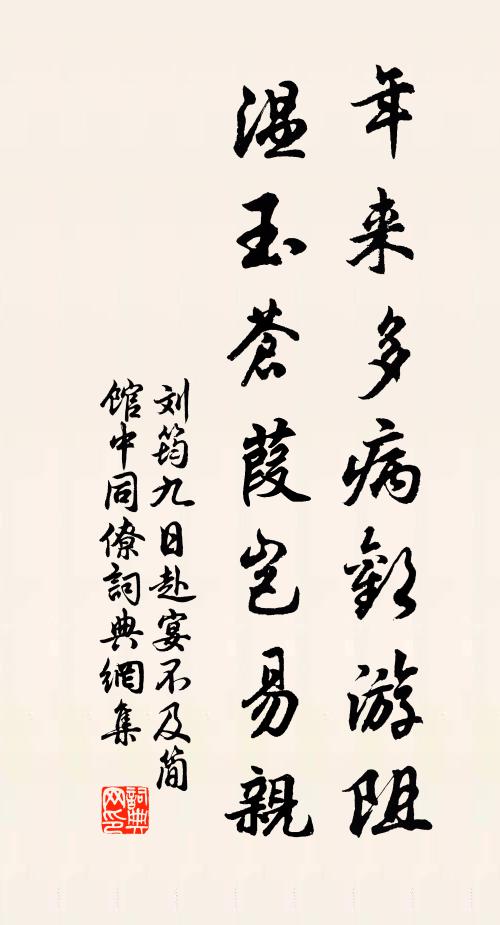 年来多病歡游阻
温玉蒼葭岂易親
刘筠九日赴宴不及簡
馆中同僚詞典網集
詞典
网印